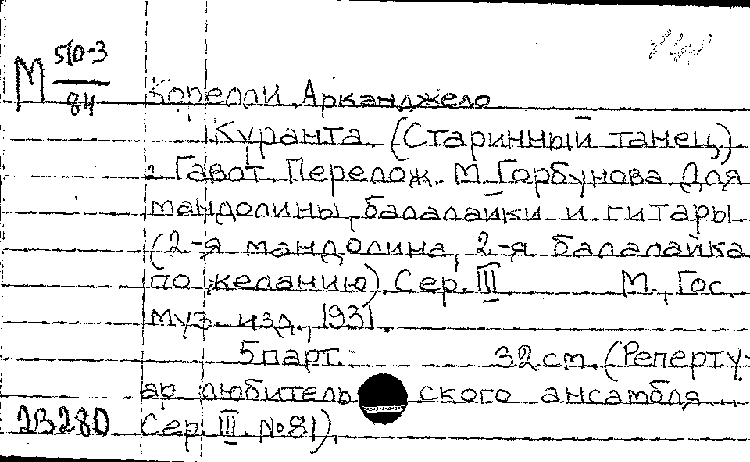 М 510-3
84
Корелли Арканджело
Куранта. (Старинный танец).
Гавот. Перелож. М. Горбунова для
мандолины, балалайки и гитары
(2-я мандолина, 2-я балалайка
по желанию). Сер. III М., Гос.
муз. изд., 1931.
5 парт. 32 см. (Реперту-
ар любительского ансамбля.
Сер. III. №81).